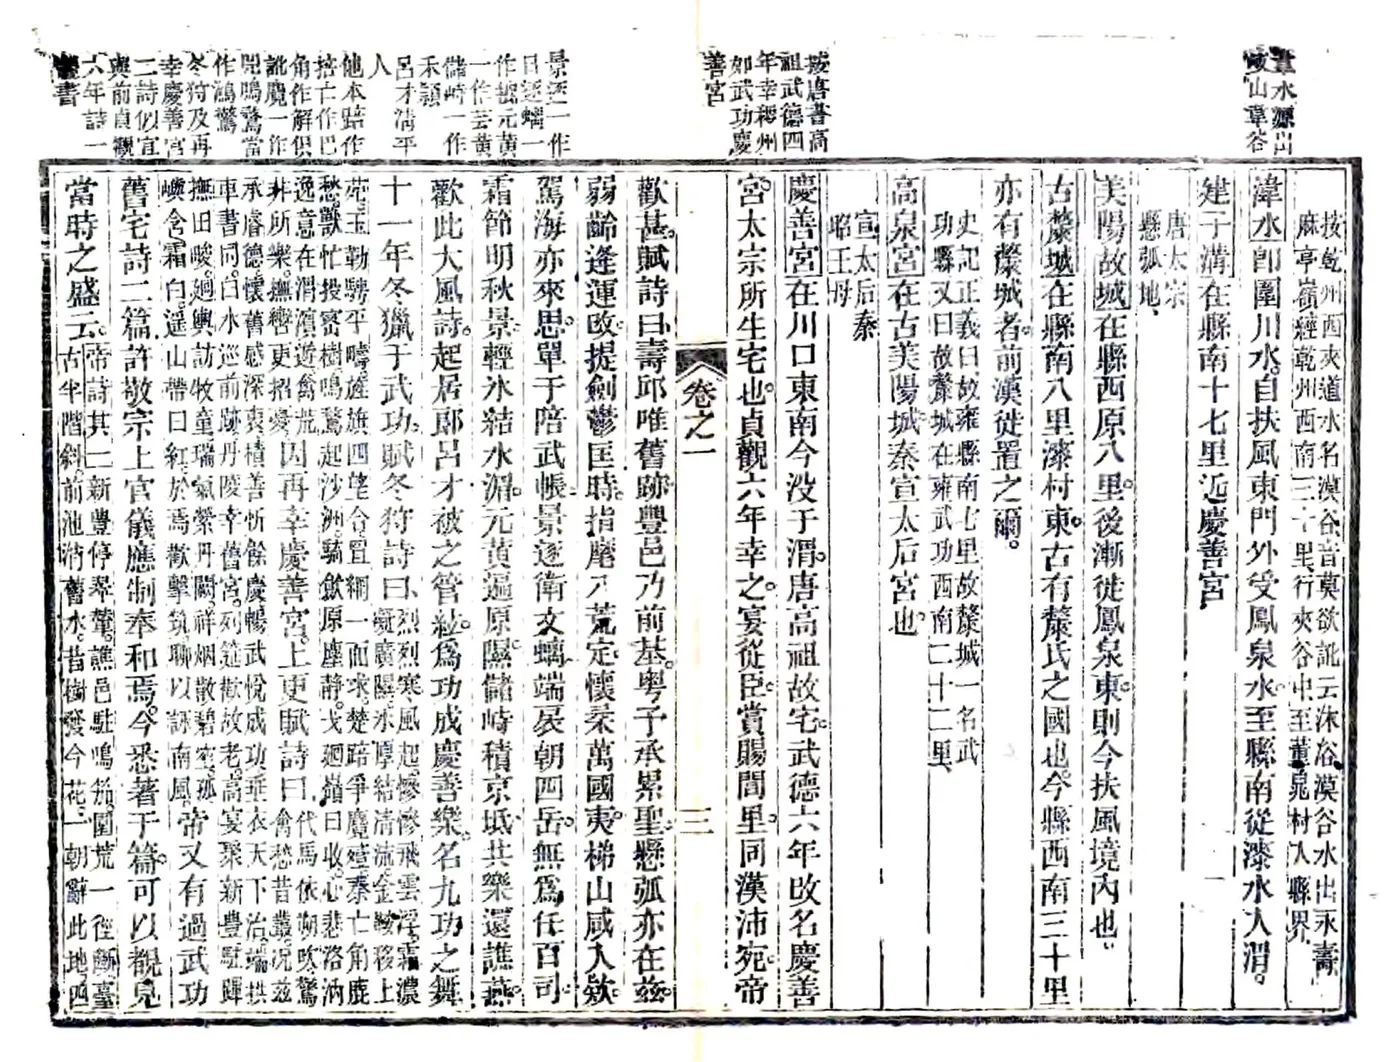 韋水源出
岐山韋谷
按唐書高
祖武德四
年幸稷州
如武功慶
善宮
景逐一作
日逐螭一
作㯍元黄
一作芸黄
儲峙一作
禾穎
呂才清平
人
他本踣作
掊亡作巴
角作解俱
訛魔一作
兕鳴驚當
作鴻驚
冬狩及再
幸慶善宮
二詩似宜
與前貞觀
六年詩一
處書
按乾州西夾道水名漠谷音莫欲訛云沐浴漠谷水出永壽
麻亭嶺經乾州西南三十里行夾谷中至董晁村入縣界
湋水卽圍川水自扶風東門外受鳳泉水至縣南從漆水入渭。
建子溝在縣南十七里近慶善宮
唐太宗
懸弧地、
美陽故城在縣西原八里。後漸徙鳳泉東。則今扶風境內也。
古斄城在縣南八里漆村東。古有斄氏之國也。今縣西南三十里
亦有斄城者。前漢徙置之爾。
史記正義曰故雍縣南七里故斄城一名武
功縣又曰故斄城在雍武功西南二十二里、
高泉宮在古美陽城秦宣太后宮也。
宣太后秦
昭王母
慶善宮在川口東南今没于渭。唐高祖故宅。武德六年改名慶善
宮。太宗所生宅也。貞觀六年幸之。宴從臣。賞賜閭里。同漢沛宛。帝
卷之一
三
歡甚。賦詩曰。壽邱唯舊跡。豐邑乃前基。粵予承累聖。懸弧亦在兹。
弱齡逢運改。提劍鬱匡時。指麾八荒定。懷柔萬國夷。梯山咸入欵。
駕海亦來思。單于陪武帳。景逐衛文螭。端扆朝四岳。無爲任百司。
霜節明秋景。輕氷結水湄。元黄遍原隰。儲峙積京坻。共樂還譙燕。
歡此大風詩。起居郎呂才被之管絃。爲功成慶善樂。名九功之舞
十一年冬獵于武功。賦冬狩詩曰、
烈烈寒風起。慘慘飛雲浮。霜濃
凝廣隰。氷厚結清流。金鞍移上
苑。玉勒騁平疇。旌旗四望合。罝網一面求。楚踣爭魔殪。秦亡角鹿
愁。獸忙投密樹。鳴驚起沙洲。騎斂原塵静。戈廻嶺日收。心悲洛汭
逸。意在渭濱遊。禽荒
非所樂。撫轡更招憂
因再幸慶善宮。上更賦詩曰、
代馬依朔吹。驚
禽愁昔叢。況兹
承睿德。懷舊感深衷。積善忻餘慶。暢武悅成功。垂衣天下治。端拱
車書同。白水巡前跡。丹陵幸舊宮。列筵歡故老。高宴聚新豐。駐蹕
撫田畯。廻輿訪牧童。瑞氣縈丹闕。祥烟散碧空。孤
嶼含霜白。遥山帶日紅。於焉歡擊筑。聊以詠南風
帝又有過武功
舊宅詩二篇。許敬宗上官儀應制奉和焉。今悉著于篇。可以覩見
當時之盛云。
帝詩其二。新豐停翠輦。譙邑駐鳴笳。園荒一徑斷。臺
古半階斜。前池消舊水。昔樹發今花。一朝辭此地。四